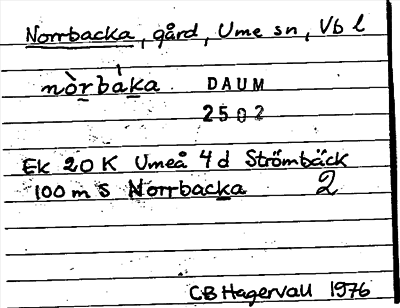 Norrbacka, gård, Ume sn, Vb l
nòrbáka DAUM
2502
Ek 20 K Umeå 4 d Strömbäck
100 m S Norrbacka 2
CB Hagervall 1976